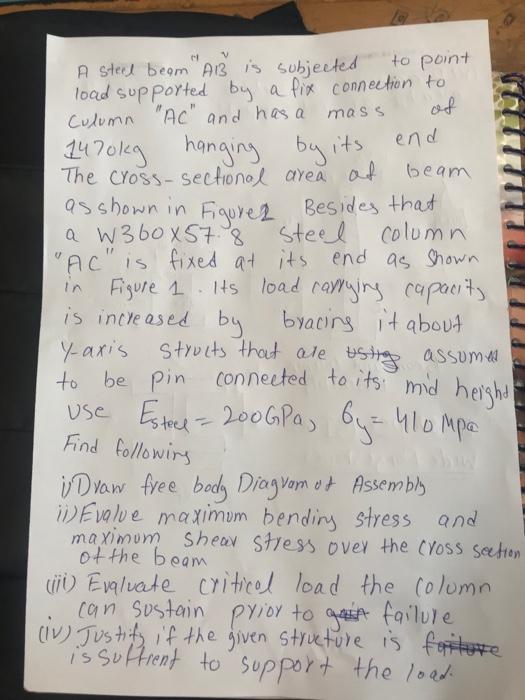 A steel beam "AB" is subjected to point
load supported by a fix connection to
Culumn "AC" and has a mass of
1470kg hanging by its end
The cross-sectional area of beam
as shown in Figure 2 Besides that
a W360X57.8 steel column
"AC" is fixed at its end as shown
in Figure 1. Its load carrying capacity
is increased by bracing it about
Y-axis structs that are assumed
to be pin connected to its mid height
Use Esteel = 200GPa, σy = 410 Mpa
Find following
i) Draw free body Diagram of Assembly
ii) Evalue maximum bending stress and
maximum shear stress over the cross section
of the beam
(iii) Evaluate critical load the column
can sustain prior to failure
(iv) Justify if the given structure is
is suffient to support the load.